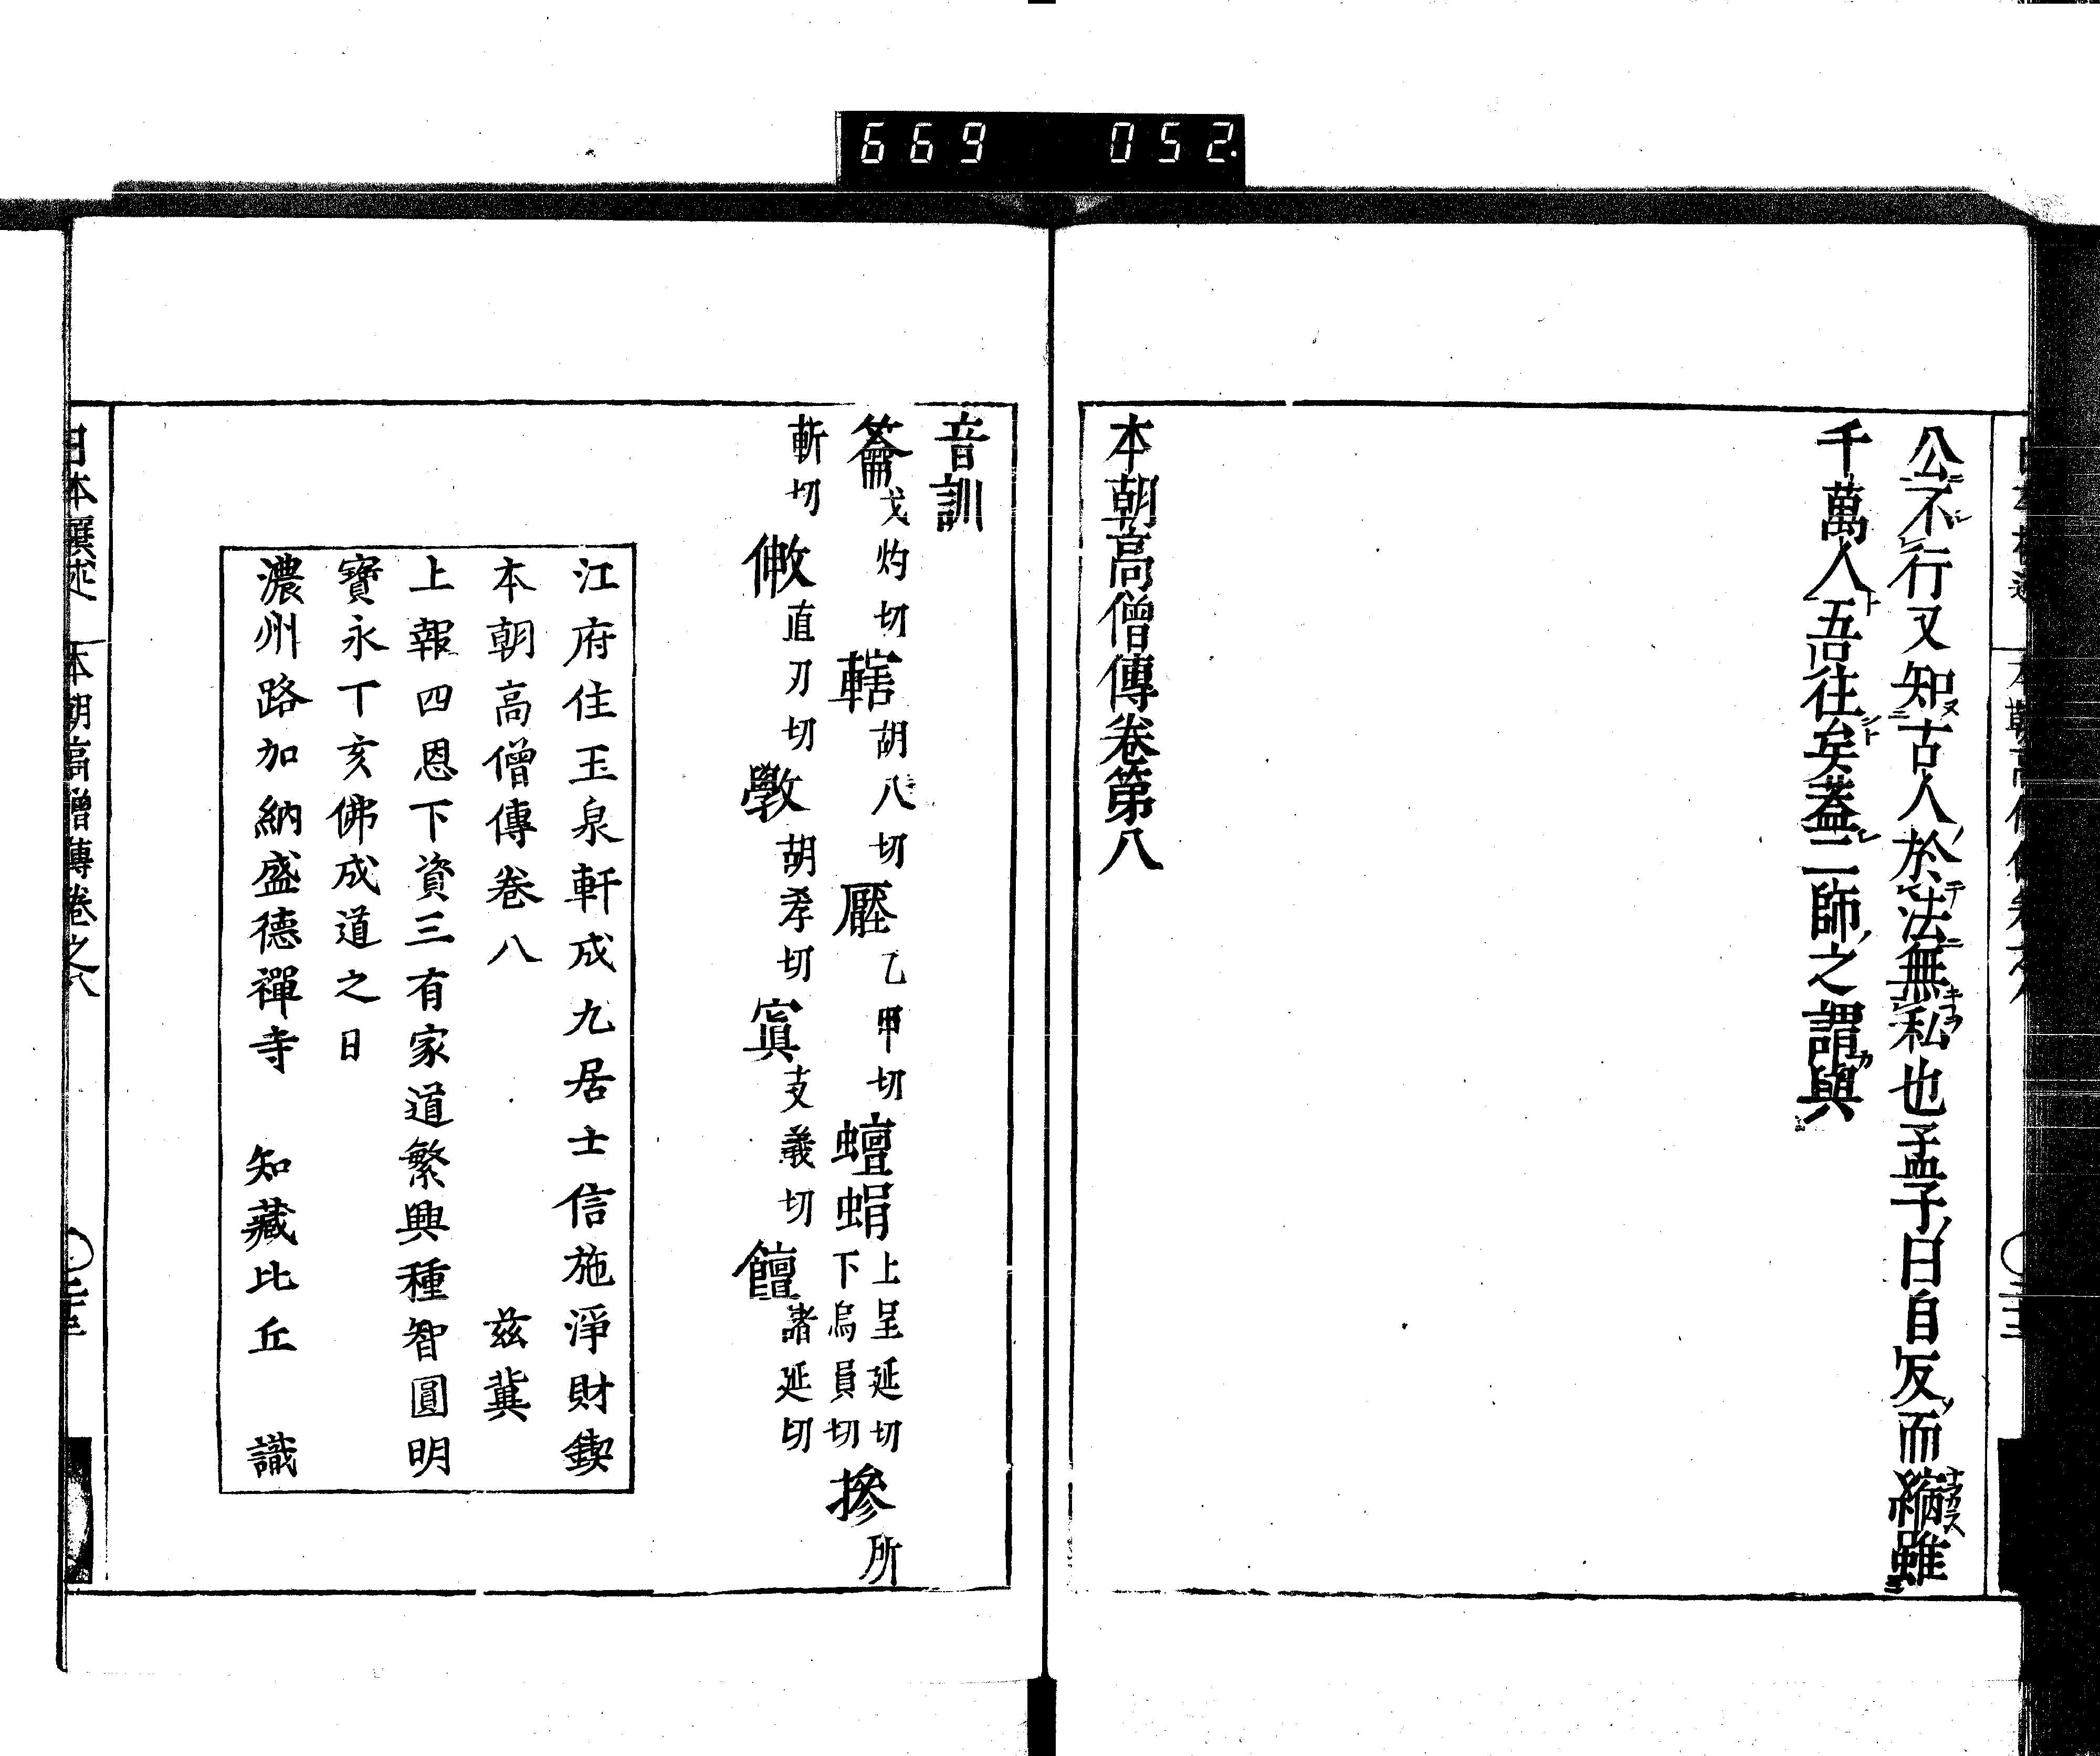 669 052
公不行又知古人於法無私也孟子曰自反而縮雖
千萬人吾往矣蓋二師之謂與
本朝高僧傳卷第八
音訓
籥戈灼切轄胡八切壓乙甲切蟺蜎上呈延切下烏員切摻所
斬切
直刃切斆胡孝切寘支義切饘諸延切
江府住玉泉軒成九居士信施淨財鍥
本朝高僧傳卷八 茲冀
上報四恩下資三有家道繁興種智圓明
寶永丁亥佛成道之日
濃州路加納盛德禪寺 知藏比丘 識
日本撰述 本朝高僧傳卷之八